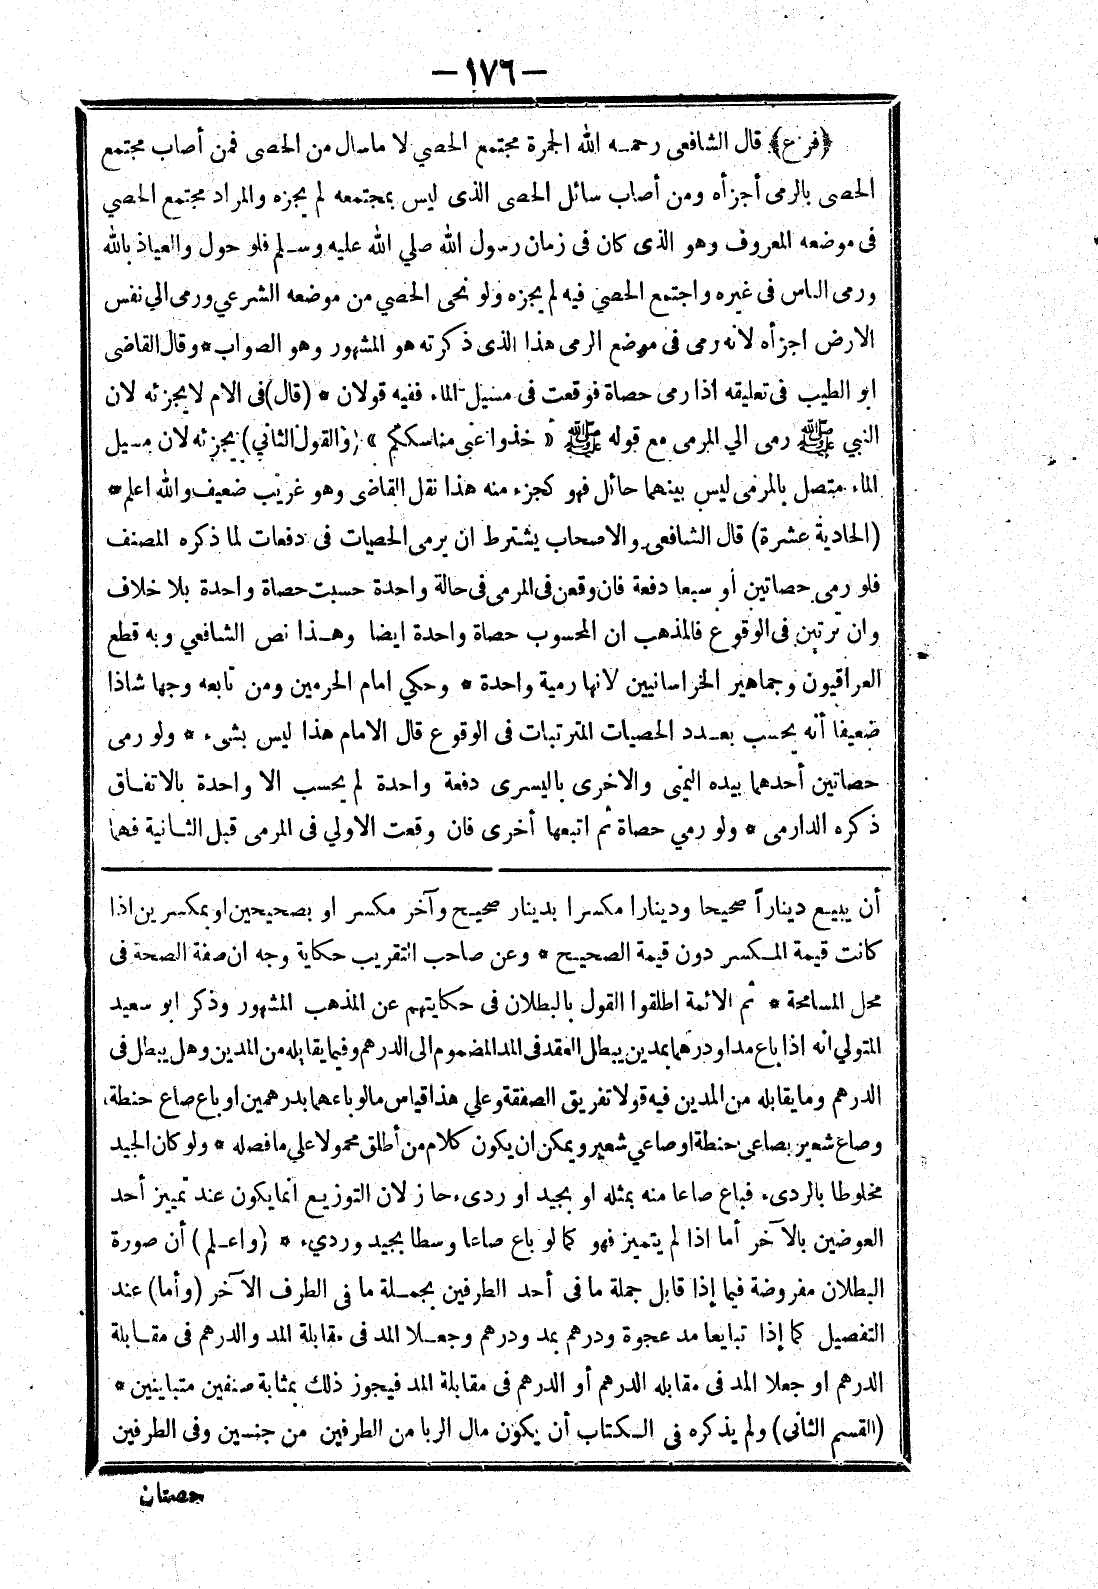 — ١٧٦ —
﴿فرع﴾ قال الشافعى رحمه الله الجمرة مجتمع الحصي لا ماسال من الحصى فمن أصاب مجتمع
الحصى بالرمى أجزأه ومن أصاب سائل الحصى الذى ليس بمجتمعه لم يجزه والمراد مجتمع الحصي
فى موضعه المعروف وهو الذى كان فى زمان رسول الله صلي الله عليه وسلم فلو حول والعياذ بالله
ورمى الناس فى غيره واجتمع الحصي فيه لم يجزه ولو نحى الحصي من موضعه الشرعي ورمى الي نفس
الارض اجزأه لانه رمى فى موضع الرمى هذا الذى ذكرته هو المشهور وهو الصواب * وقال القاضى
ابو الطيب فى تعليقه اذا رمى حصاة فوقعت فى مسيل الماء ففيه قولان * (قال) فى الام لا يجزئه لان
النبي ﷺ رمى الي المرمى مع قوله ﷺ « خذوا عنى مناسككم » (والقول الثاني) يجزئه لان مسيل
الماء متصل بالمرمى ليس بينهما حائل فهو كجزء منه هذا نقل القاضى وهو غريب ضعيف والله اعلم *
(الحادية عشرة) قال الشافعى والاصحاب يشترط ان يرمى الحصيات فى دفعات لما ذكره المصنف
فلو رمى حصاتين أو سبعا دفعة فان وقعن فى المرمى فى حالة واحدة حسبت حصاة واحدة بلا خلاف
وان ترتبن فى الوقوع فالمذهب ان المحسوب حصاة واحدة ايضا وهذا نص الشافعي وبه قطع
العراقيون وجماهير الخراسانيين لانها رمية واحدة * وحكي امام الحرمين ومن تابعه وجها شاذا
ضعيفا أنه يحسب بعدد الحصيات المترتبات فى الوقوع قال الامام هذا ليس بشىء * ولو رمى
حصاتين أحدهما بيده اليمنى والاخرى باليسرى دفعة واحدة لم يحسب الا واحدة بالاتفاق
ذكره الدارمى * ولو رمي حصاة ثم اتبعها أخرى فان وقعت الاولي فى المرمى قبل الثانية فهما
أن يبيع ديناراً صحيحا ودينارا مكسرا بدينار صحيح وآخر مكسر او بصحيحين او بمكسرين اذا
كانت قيمة المكسر دون قيمة الصحيح * وعن صاحب التقريب حكاية وجه ان صفة الصحة فى
محل المسامحة * ثم الائمة اطلقوا القول بالبطلان فى حكايتهم عن المذهب المشهور وذكر ابو سعيد
المتولي انه اذا باع مدا ودرهما بمدين يبطل العقد فى المد المضموم الى الدرهم وفيما يقابله من المدين وهل يبطل فى
الدرهم وما يقابله من المدين فيه قولا تفريق الصفقة وعلي هذا قياس مالو باعهما بدرهمين او باع صاع حنطة
وصاع شعير بصاعى حنطة او صاعي شعير ويمكن ان يكون كلام من أطلق محمولا علي ما فصله * ولو كان الجيد
مخلوطا بالردىء فباع صاعا منه بمثله او بجيد او ردىء جاز لان التوزيع انما يكون عند تمييز أحد
العوضين بالآخر أما اذا لم يتميز فهو كما لو باع صاعا وسطا بجيد وردىء * (واعلم) أن صورة
البطلان مفروضة فيما إذا قابل جملة ما فى أحد الطرفين بجملة ما فى الطرف الآخر (وأما) عند
التفصيل كما إذا تبايعا مد عجوة ودرهم بمد ودرهم وجعلا المد فى مقابلة المد والدرهم فى مقابلة
الدرهم او جعلا المد فى مقابله الدرهم أو الدرهم فى مقابلة المد فيجوز ذلك بمثابة صنفين متباينين *
(القسم الثانى) ولم يذكره فى الكتاب أن يكون مال الربا من الطرفين من جنسين وفى الطرفين
حصتان